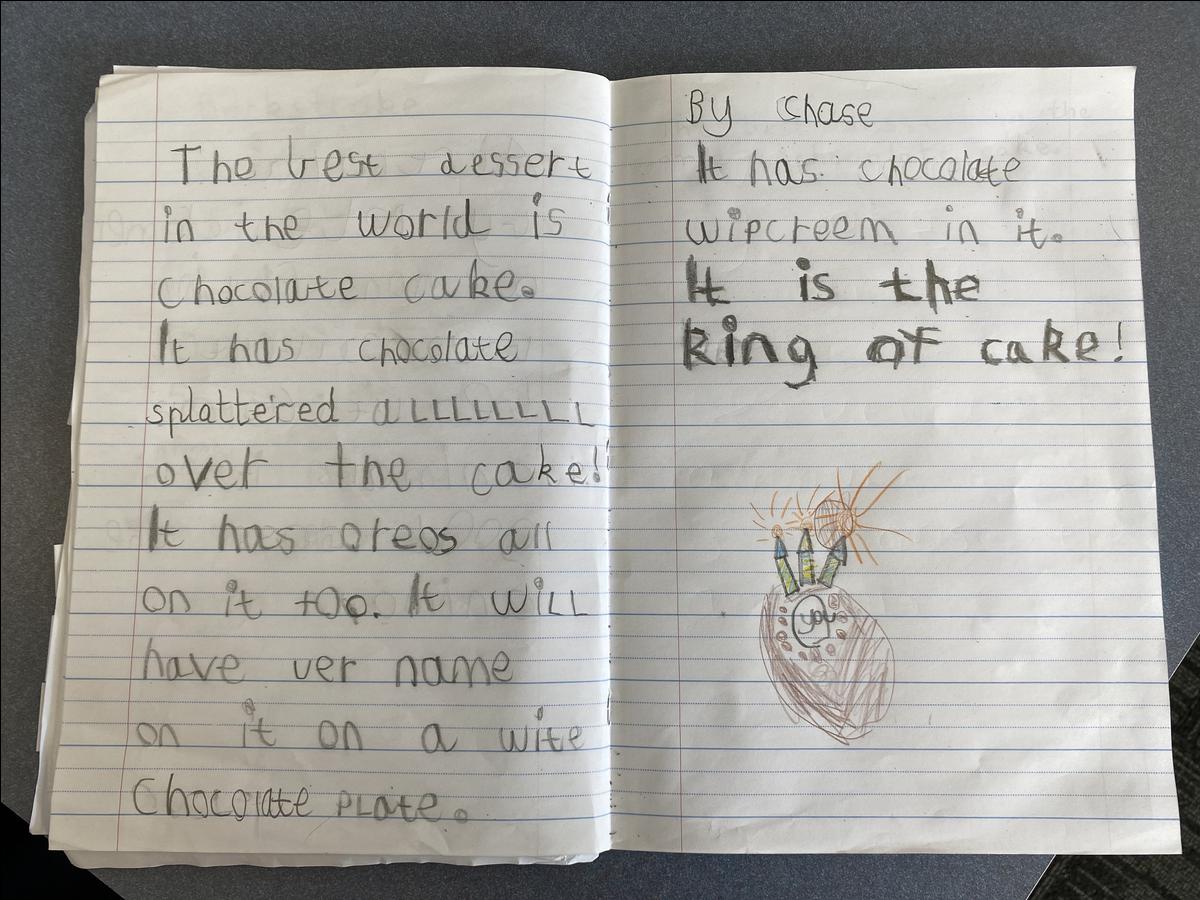 The best dessert
in the world is
Chocolate cake.
It has chocolate
splattered aLLLLLLLL
over the cake!
It has oreos all
on it too. It wiLL
have ver name
on it on a wite
Chocolate PLate.
By chase
It has chocolate
wipcreem in it.
It is the
king of cake!
you